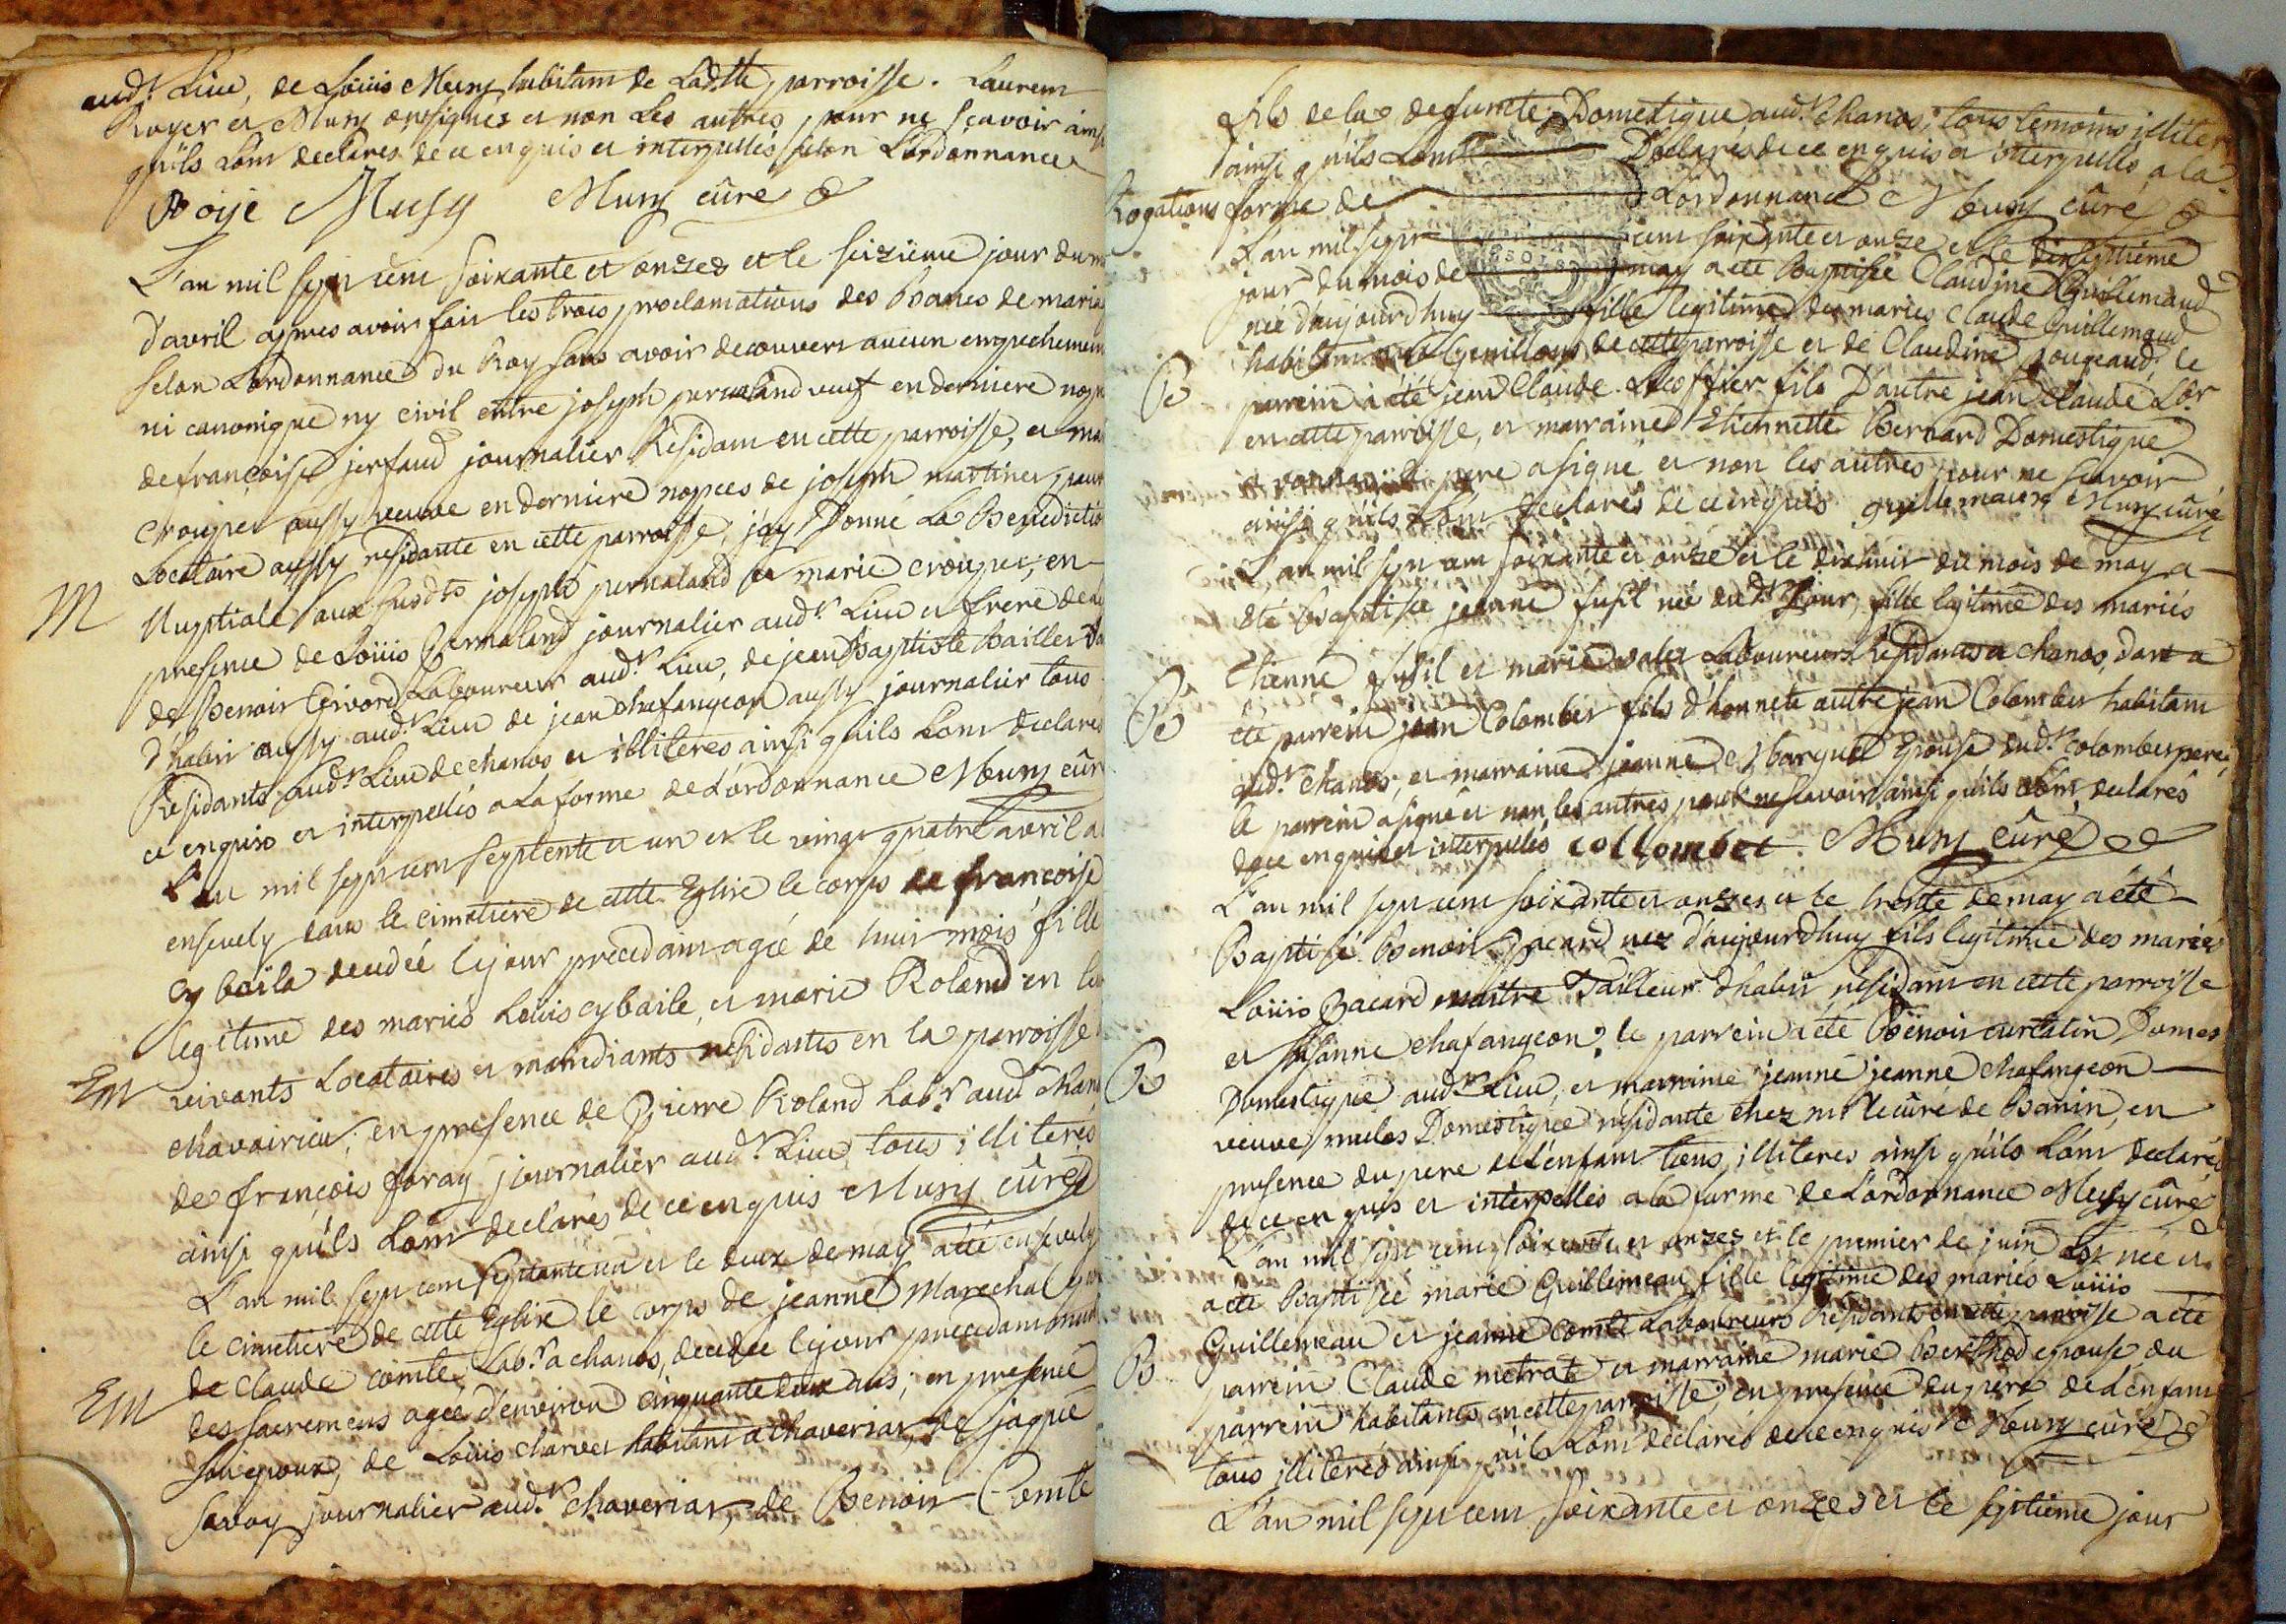 audt. Lieu, de Loüis Musy habitant de Laditte parroisse. Laurent
Royer et Musy ensignés et non Les autres pour ne sçavoir ainsi
qu'ils L'ont declarés de ce enquis et interpellés selon L'ordonnance
Roije Musy Musy cûré
L'an mil sept cent soixante et onzes et le seizieme jour du m
d'avril apres avoir fait les trois proclamations des Bancs de maria
selon L'ordonnance du Roy sans avoir decouvert aucun empechement
ni canonique ny civil entre joseph pernaland veuf en derniere nop
de françoise jerfaud journalier Residant en cette parroisse, et ma
croupier aussy veuve en derniere nopces de joseph martines
Locataire aussy residante en cette parroisse, j'ay Donné La Benedictio
M
Nuptiale aux susdts joseph pernaland et marie en
presence de Loüis Pernaland journalier audt. Lieu et frere de
de Benoit Givord Laboureur audt. Lieu, de jean Baptiste Bailler
d'habit aussy audt. Lieu de jean chafangeon aussy journalier tous
Residants audt. Lieu de chanos et illiteres ainsi qu'ils L'ont declares
ce enquis et interpellés a La forme de L'ordonnance Musy cûr
L'an mil sept cent septente et un et le vingt quatre avril a
ensevely dans le cimetiere de cette Eglise le corps de françoise
cybaila decedéé le jour precedant agéé de huit mois fille
legitime des mariés Loüis cybaile, et marie Roland en
Em
vivants Locataires et mandiants residants en la parroisse
chavairieu; en presence de Pierre Roland Labr. audt chan
de françois foray journalier audt. Lieu tous illiterés
ainsi qu'ils L'ont declarés de ce enquis Musy cûré
L'an mil sept cent septante un et le deux de may a été ensevely
le cimetiere de cette Eglise le corps de jeanne Marechal
de claude comte, Labr. a chanos, decedee le jour precedant
Em
des sacremens agéé d'environ cinquante deux ans; en presence
son epoux, de Loüis charvet habitant a chaveriat, de jaque
savoy journalier audt. chaveriat, de Benoit Comte
fils de la defuncte; Domestique audt. chanos; tous temoins illiter
ainsi qu'ils L'ont Declarés de ce enquis et interpellés a la
Rogations forme de L'ordonnance Musy cûré
L'an mil sept cent soixante et onze et le dixseptieme
jour du mois de may a eté Baptisée Claudine Guillemaud
née d'aujourdhuy fille legitime des mariés claude Guillemaud
habitant de cette parroisse et de Claudine le
B
parrein a été jean Claude fils D'autre jean Claude
en cette parroisse, et marraine Etiennette Bernard Domestique
a le pere a signé et non les autres pour ne sçavoir
ainsi qu'ils L'ont declarés de ce enquis guillemaud Musy cûré
L'an mil sept cent soixante et onze et le dixhuit du mois de may a
été baptisée jeanne fusil néé dudt. jour, fille legitime des mariés
Etienne fusil et marie Laboureurs Residants a chanos, dont a
B
été parrein jean Colombet fils d'honnete autre jean Colombet habitant
audt. chanos, et marraine jeanne Epouse dudt. colombet pere,
le parrein a signé et non les autres pour ne sçavoir ainsi qu'ils L'ont declarés
de ce enquis et interpellés collombet Musy cûré
L'an mil sept cent soixante et onzes et le trente de may a été
Baptisé Benoit Pacard nez d'aujourdhuy fils legitime des mariés
Loüis Pacard maitre Tailleur d'habit residant en cette parroisse
et susanne chafangeon; le parrein a été Benoit curtalin Domes
B
Domestique audt. Lieu, et marraine jeanne jeanne chafangeon
veuve Domestique residante chez mr. le cûré de Banin, en
presence du pere de l'enfant tous illiteres ainsi qu'ils L'ont declarés
de ce enquis et interpellés a la forme de L'ordonnance Musy cûré
L'an mil sept cent soixante et onzes et le premier de juin est néé et
a été Baptiséé marie Guillemeau fille legitime des mariés Loüis
Guillemeau et jeanne comte Laboureurs Residants en cette parroisse a été
B
parrein Claude metrat et marraine marie Berthod epouse du
parrein habitants en cette parroisse; en presence du pere de L'enfant
tous illiterés ainsi qu'ils L'ont declarés de ce enquis Musy cûré
L'an mil sept cent soixante et onzes et le septieme jour